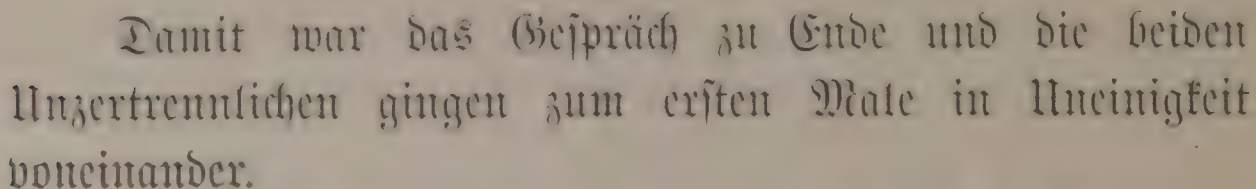 Damit war das Gespräch zu Ende und die beiden
Unzertrennlichen gingen zum ersten Male in Uneinigkeit
voneinander.